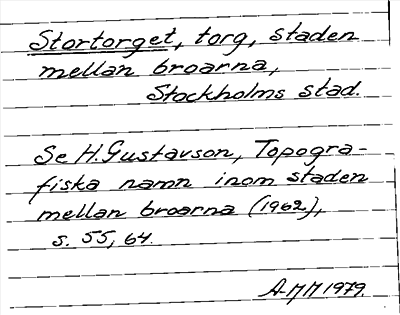 Stortorget, torg, staden
mellan broarna,
Stockholms stad.
Se H. Gustavson, Topogra-
fiska namn inom staden
mellan broarna (1962),
s. 55, 64.
AMM 1979.